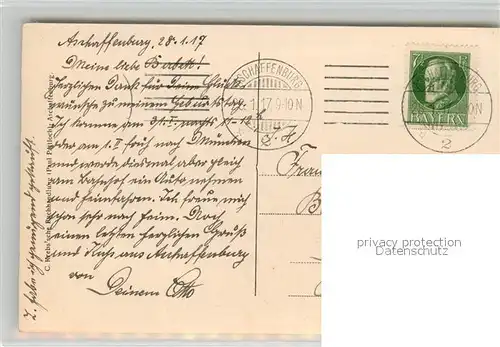 Aschaffenburg, 28.1.17
Meine liebe Babett!
Herzlichen Dank für Deine Glück-
wünsche zu meinem Geburtstag.
Ich komme am 31. I. nachts 11-12
oder am 1. II früh nach München
und werde diesmal aber gleich
am Bahnhof ein Auto nehmen
und heimfahren. Ich freue mich
schon sehr nach heim. Noch
einen letzten herzlichen Gruß
und Kuß aus Aschaffenburg
von
Deinem Otto
C. Krebs'sche Buchhandlung (Paul Pattloch) Aschaffenburg.
ASCHAFFENBURG
1.17.9-10 N
Frau
B
7 7
BAYERN
2
privacy protection
Datenschutz